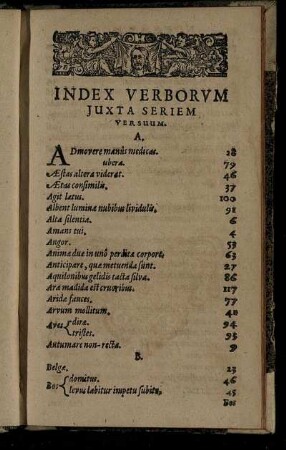 INDEX VERBORVM
JUXTA SERIEM
VERSUUM.
A.
ADmovere manus medicas. 28
ubera. 79
Æstas altera viderat. 46
Ætas consimilis. 37
Agit latus. 100
Albent lumina nubibus lividulis. 91
Alta silentia. 6
Amans tui. 4
Angor. 53
Animæ duæ in uno perdita corpore. 63
Anticipare, quæ metuenda sunt. 27
Aquilonibus gelidis tacta silva. 86
Ara madida est cruoribus. 117
Aridæ fauces. 77
Arvum mollitum. 40
Aves diræ. 94
tristes. 95
Autumare non-recta. 9
B.
Belgæ. 23
Bos domitus. 46
levis labitur impetu subito. 45
Bos